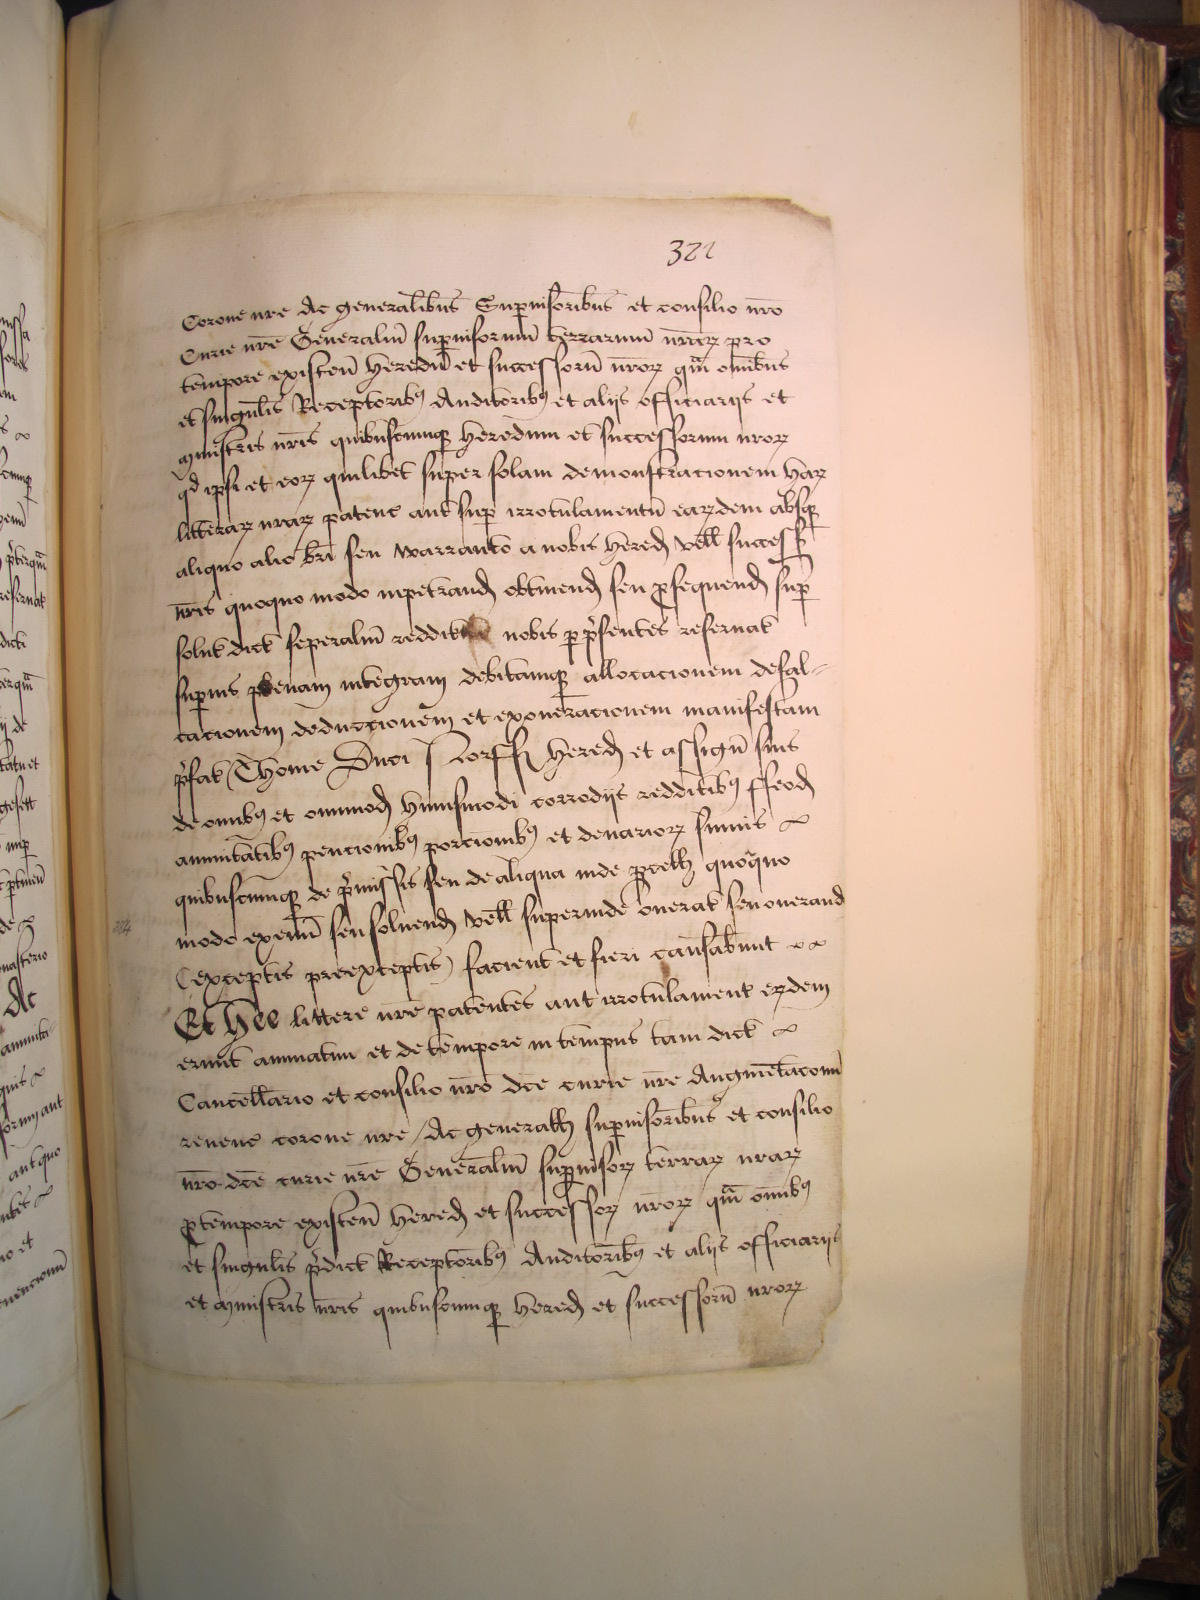 321
Corone nre Ac generalibus Supervisoribus et consilio nro
Curie nre Generaliu supervisorum terrarum nrar pro
tempore existen heredu et successoru nror qm omibus
et singulis Receptoribus Auditoribus et aliis officiariis et
ministris nris quibuscumque heredum et successorum nror
qd ipsi et eor quilibet super solam demonstracionem har
litterar nrar patenc aut sup irrotulamentu eardem absque
aliquo alio bri seu warranto a nobis hered vell success
nris quoquo modo inpetrand obtinend seu prosequend sup
solut dict seperaliu reddit nobis p psentes reservat
superius plenam integram debitamque allocacionem defal-
cacionem deduccionem et exoneracionem manifestam
pfat Thome Duci Norff hered et assign suis
de omibus et ommod huiusmodi corrodiis redditibus ffeod
annuitatibus pencionibus porcionibus et denarior sumis
quibuscumque de pmissis seu de aliqua inde pcell quoquo
modo exeun seu solvend vell superinde onerat seu onerand
(exceptis preexceptis) facient et fieri causabunt
Et hee littere nre patentes aut irrotulament eardem
erunt annuatim et de tempore in tempus tam dict
Cancellario et consilio nro dce curie nre Augmetaconu
revenc corone nre / Ac generall supervisoribus et consilio
nro dce curie nre Generaliu supervisor terrar nrar
pro tempore existen hered et successor nror qm omibus
et singulis pdict Receptoribus Auditoribus et aliis officiariis
et ministris nris quibuscumque hered et successoru nror